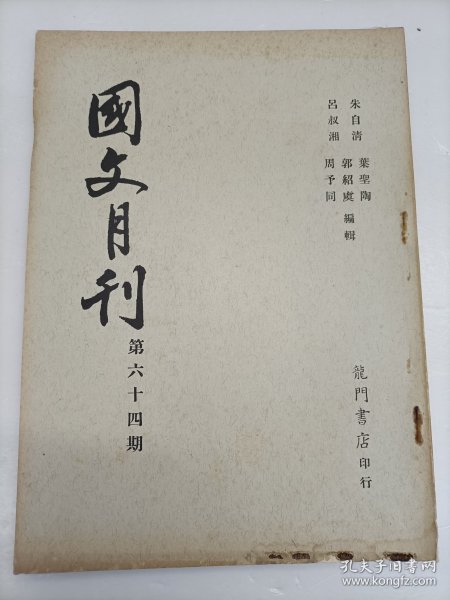 朱自清 葉聖陶
郭紹虞 編輯
呂叔湘 周予同
國文月刊
第六十四期
龍門書店印行
孔夫子旧书网
www.kongfz.com